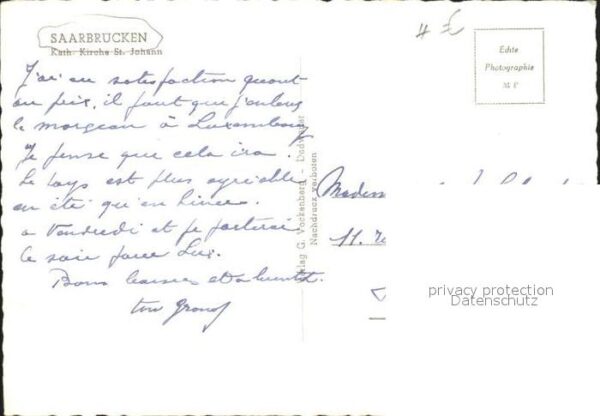 SAARBRÜCKEN
Kath. Kirche St. Johann
J'ai eu satisfaction quant
au prix. il faut que j'enlève
le morceau à Luxembourg
Je pense que cela ira.
Le pays est plus agréable
en été qu'en hiver.
a Vendredi et je partirai
le soir pour Lux.
Bons baisers et à bientôt.
ton
Verlag G. Vockenberg - Dudweiler
Nachdruck verboten
Echte
Photographie
11.
privacy protection
Datenschutz